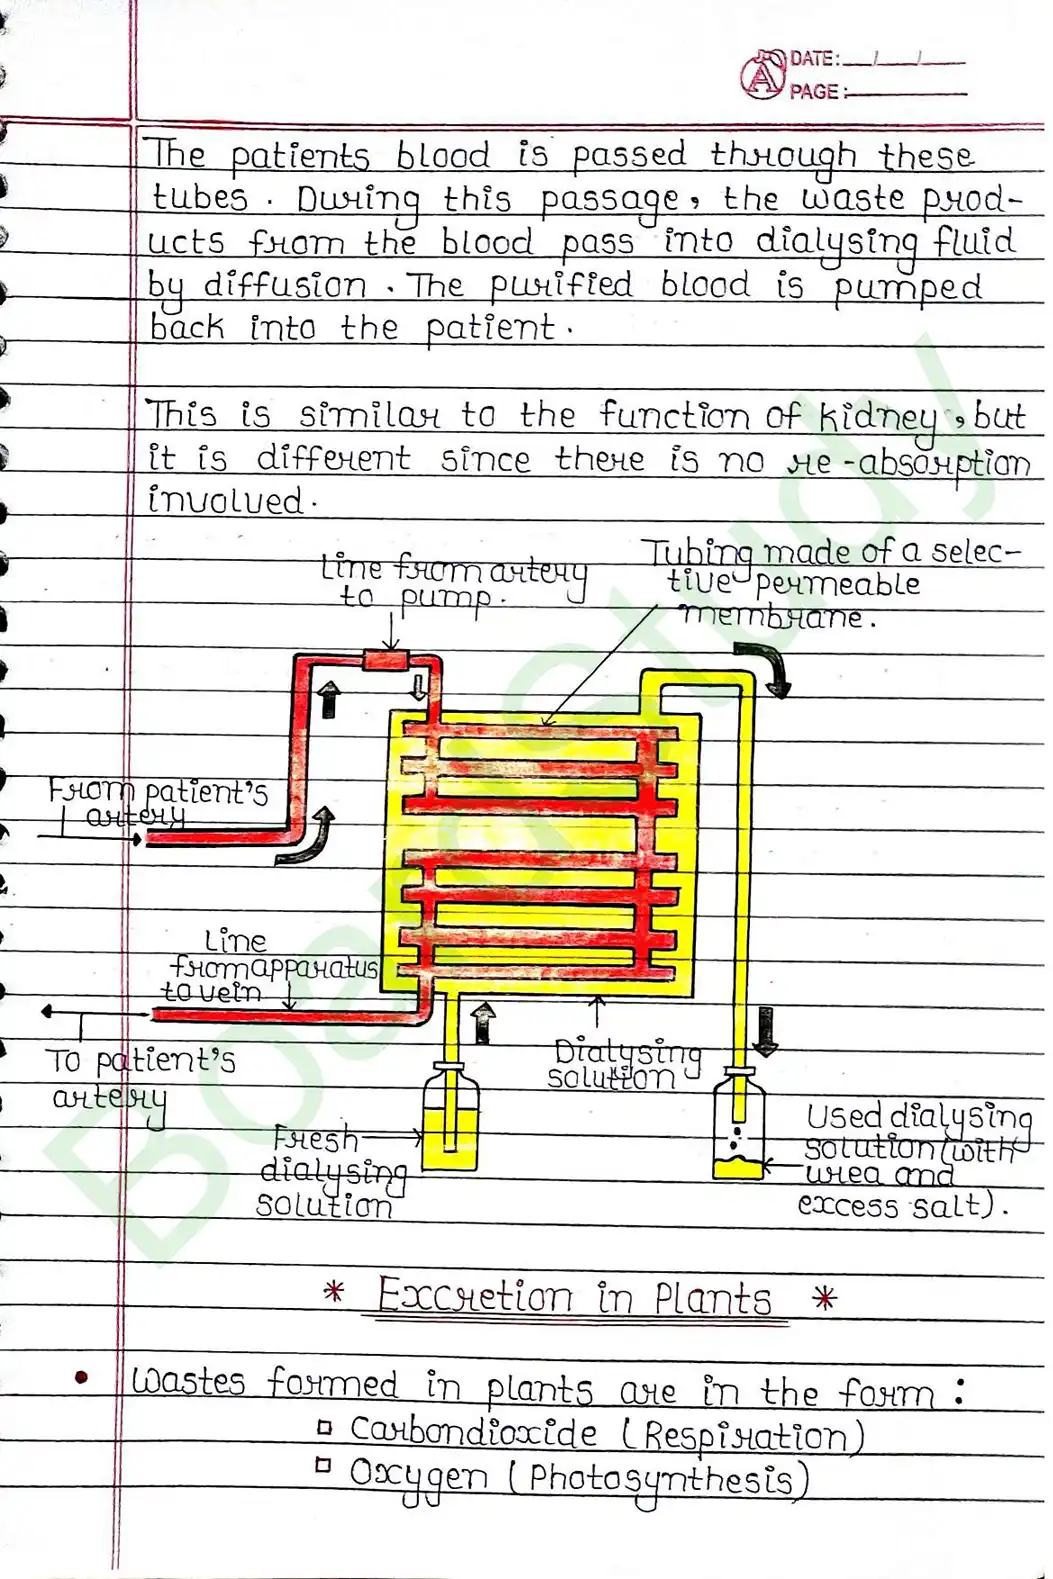 DATE: __/__/__
PAGE:
The patients blood is passed through these
tubes. During this passage, the waste prod-
ucts from the blood pass into dialysing fluid
by diffusion. The purified blood is pumped
back into the patient.
This is similar to the function of kidney, but
it is different since there is no re-absorption
involved.
Line from artery
to pump.
Tubing made of a selec-
tive permeable
membrane.
From patient's
artery
Line
from apparatus
to vein
To patient's
artery
Dialysing
solution
Fresh
dialysing
solution
Used dialysing
solution (with
urea and
excess salt).
* Excretion in Plants *
• Wastes formed in plants are in the form :
▫ Carbondioxide (Respiration)
▫ Oxygen (Photosynthesis)
BoardStudy